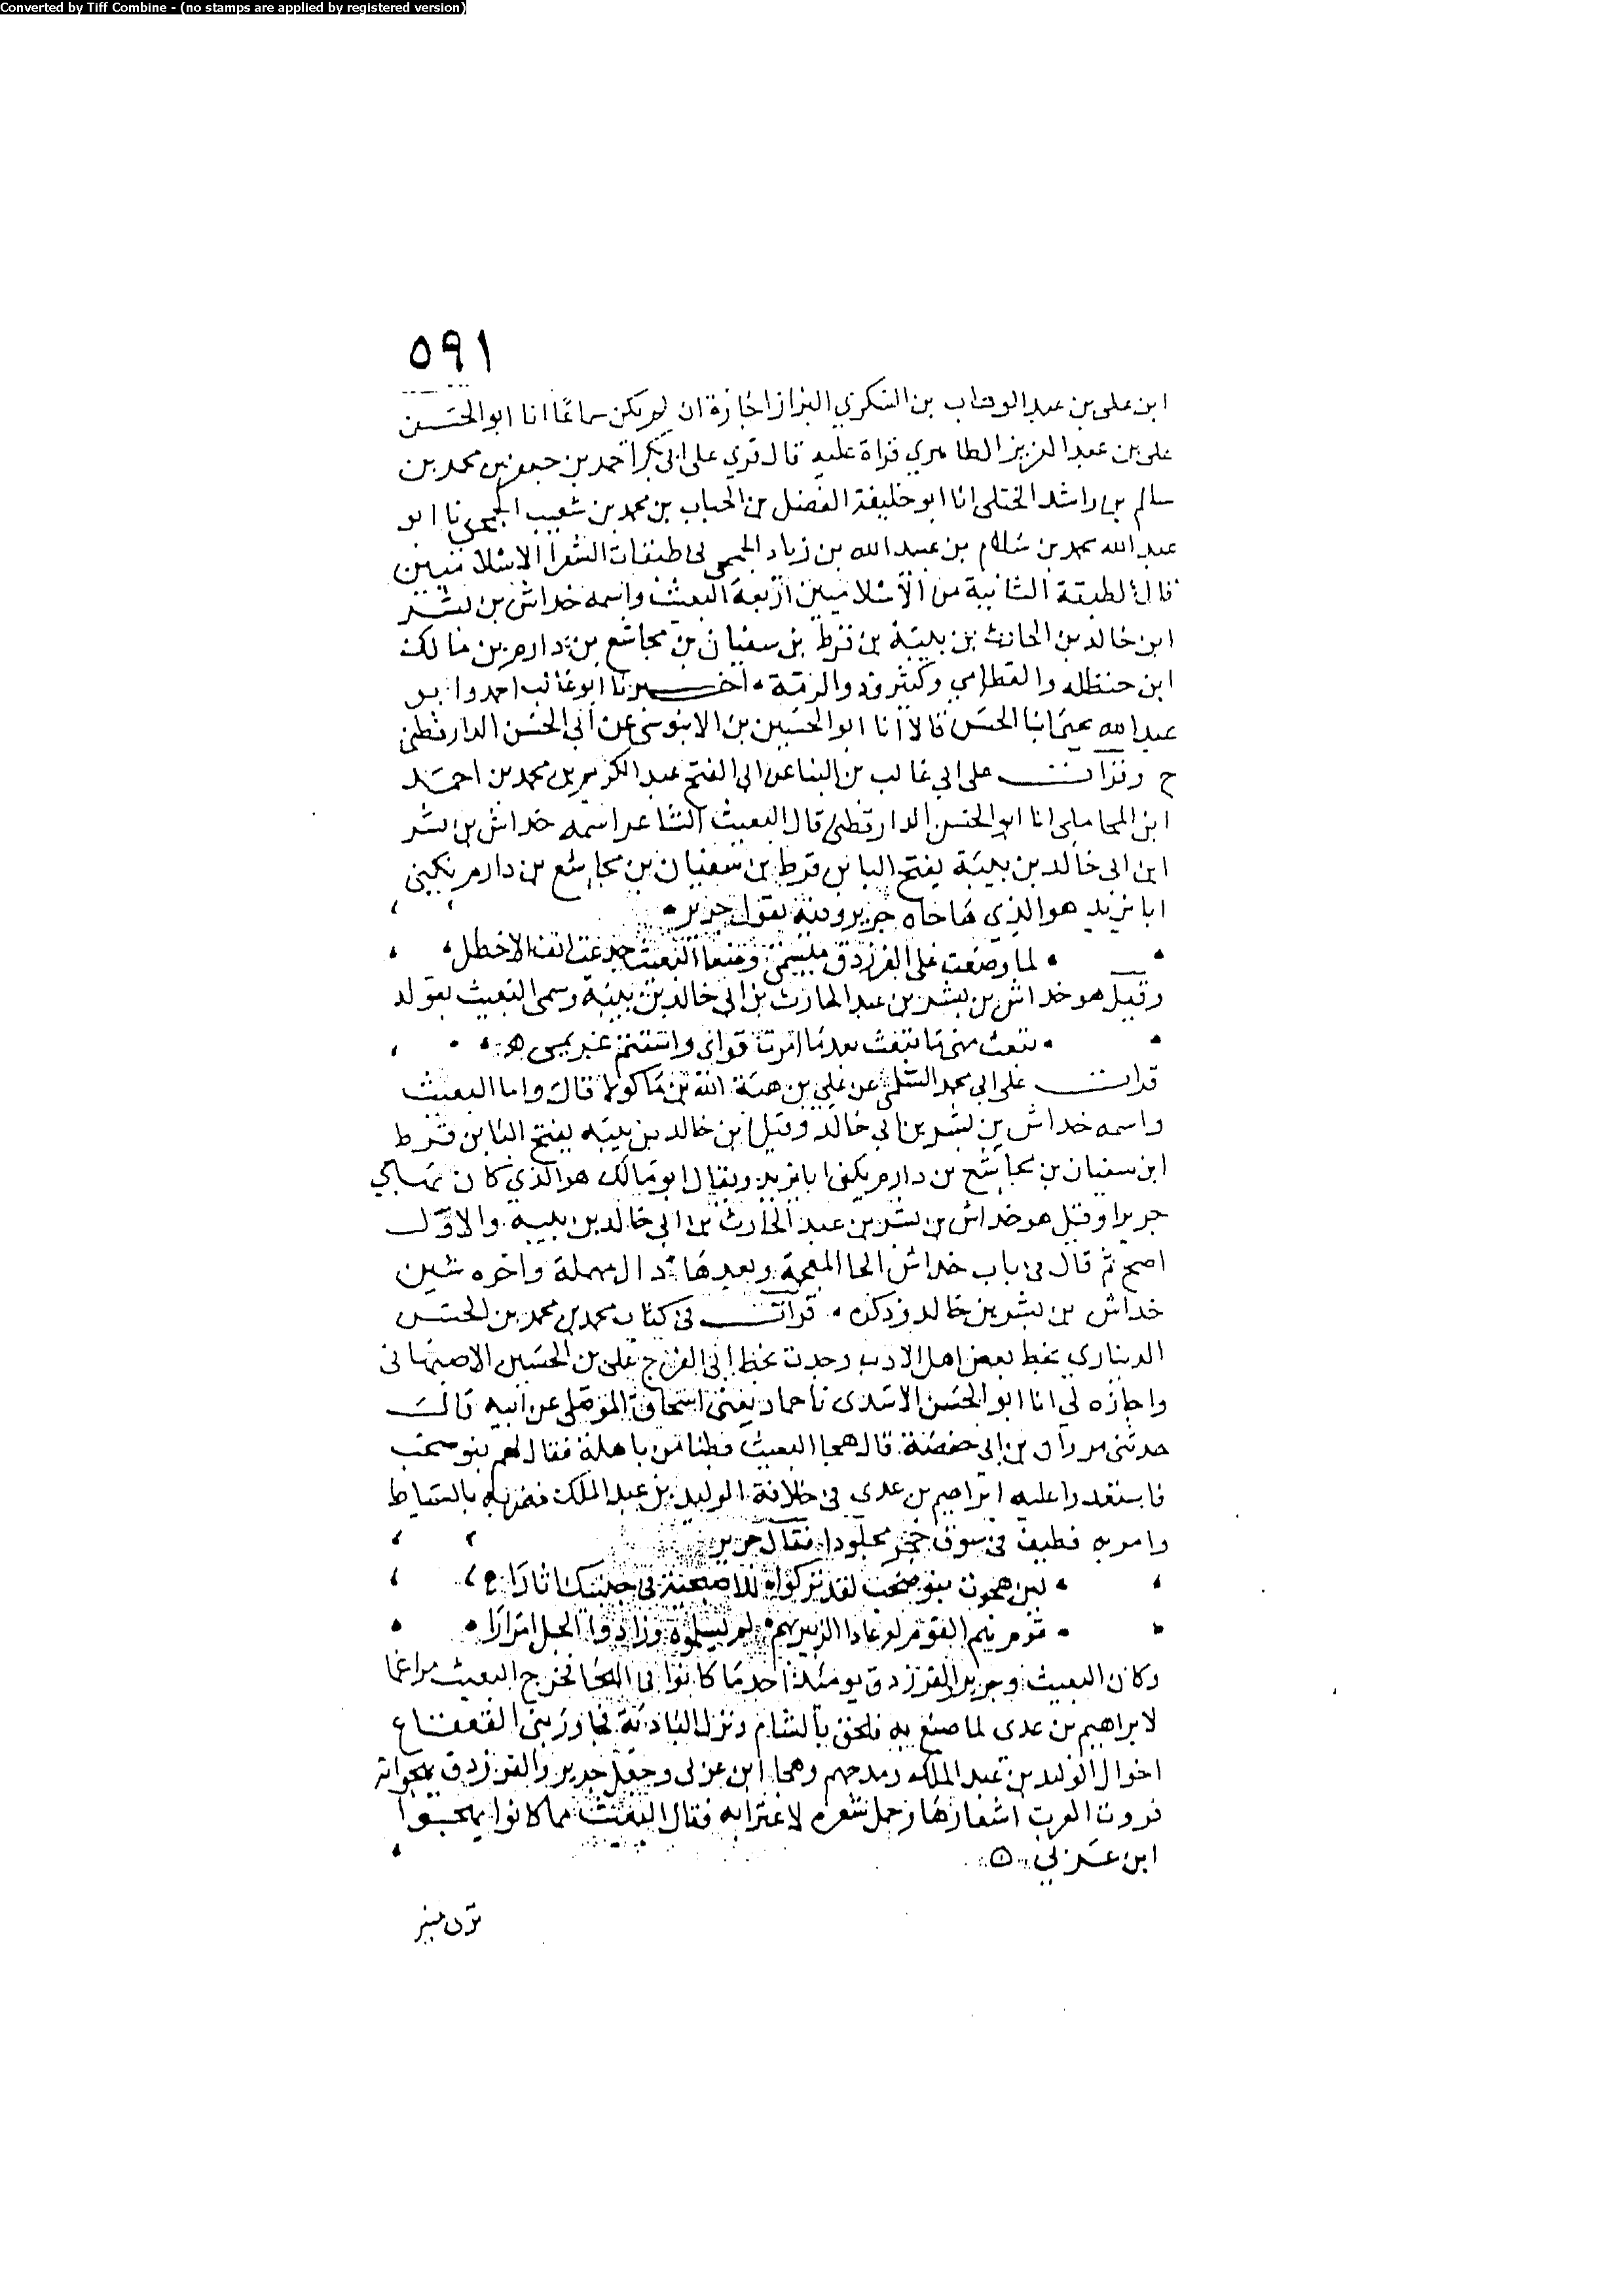 Converted by Tiff Combine - (no stamps are applied by registered version)
٥٩١
ابن على بن عبد الوهاب بن السكري البزاز اجازة ان لم يكن سماعا انا ابو الحسن
على بن عبد العزيز الطاهري قراة عليه قال قري على ابى بكر احمد بن جعفر بن محمد بن
سالم بن راشد الختلى انا ابو خليفة الفضل بن الحباب بن محمد بن شعيب الجمحى نا ابو
عبد الله محمد بن سلام بن عبيد الله بن زياد الجمحى فى طبقات الشعرا الاسلاميين
قال الطبقة الثانية من الاسلاميين اربعة البعيث واسمه خداش بن بشر
ابن خالد بن الحارث بن بيبة بن قرط بن سفيان بن مجاشع بن دارم بن مالك
ابن حنظله والقطامي وكثير وذو الرمة اخبرنا ابو غالب احمد وابو
عبد الله يحيى ابنا الحسن قالا انا ابو الحسين بن الابنوسى عن ابي الحسن الدارقطنى
ح وقرات على ابي غالب بن البنا عن ابى الفتح عبد الكريم بن محمد بن احمد
ابن المحاملى انا ابو الحسن الدارقطنى قال البعيث الشاعر اسمه خداش بن بشر
ابن ابى خالد بن بيبة بفتح البا بن قرط بن سفيان بن مجاشع بن دارم يكنى
ابا يزيد هو الذي هاجاه جرير وفيه يقول جرير
لما وضعت على الفرزدق ميسمى وضغا البعيث جدعت انف الاخطل
وقيل هو خداش بن بشر بن عبد الحارث بن ابى خالد بن بيبة وسمى البعيث بقوله
تبعث منى ما تبعث بعد ما امرت قواى واستتم عزيمى
قرات على ابى محمد السلمى عن علي بن هبة الله بن ماكولا قال واما البعيث
واسمه خداش بن بشر بن ابي خالد وقيل ابن خالد بن بيبه بفتح البا بن قرط
ابن سفيان بن مجاشع بن دارم يكنى ابا يزيد ويقال ابو مالك هو الذي كان يهاجي
جريرا وقيل هو خداش بن بشر بن عبد الحارث بن ابي خالد بن بيبه والاول
اصح ثم قال فى باب خداش الخا المعجمة وبعدها دال مهملة واخره شين
خداش بن بشر بن خالد وذكره قرات فى كتاب محمد بن محمد بن الحسن
الدينارى بخط بعض اهل الادب وجدت بخط ابى الفرج على بن الحسين الاصبهانى
واجازه لي انا ابو الحسن الاسدى نا حماد يعنى اسحاق الموصلى عن ابيه قال
حدثنى مروان بن ابي حفصة قال هجا البعيث بطنا من باهلة فقال لهم بنو صحب
فاستعدوا عليه ابراهيم بن عدى فى خلافة الوليد بن عبد الملك فضربه بالسياط
وامر به فطيف فى سوق حجر مجلودا فقال جرير
لين هجوت بنو صحب لقد تركوا للاصبحية فى جنبيك اثارا
قوم هم القوم لو عاذ الزبير بهم لم يسلموه وزادوا الحبل امرارا
وكان البعيث وجرير الفرزدق يومئذ احد ما كانوا فى الهجا فخرج البعيث مراغما
لابراهيم بن عدى لما صنع به فلحق بالشام ونزل البادية فجاور بنى القعقاع
اخوال الوليد بن عبد الملك ومدحهم وهجا ابن عربي وجعل جرير والفرزدق يهجوانه
فروت العرب اشعارها وحمل شعره لاغترابه فقال البعيث مما كانوا يهجوا
ابن عربي